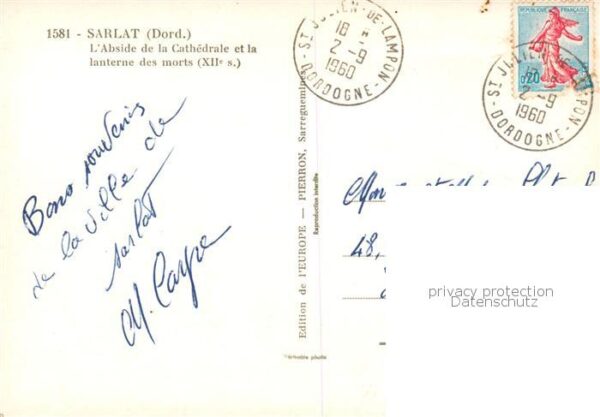 1581 - SARLAT (Dord.)
L'Abside de la Cathédrale et la
lanterne des morts (XIIe s.)
Bons souvenirs
de la ville de
sarlat
Edition de l'EUROPE — PIERRON, Sarreguemines
Reproduction interdite
Véritable photo
ST JULIEN-DE-LAMPON
18 H
2-9
1960
DORDOGNE
REPUBLIQUE FRANÇAISE
0,20
ST JULIEN-DE-LAMPON
18 H
2-9
1960
DORDOGNE
48,
privacy protection
Datenschutz